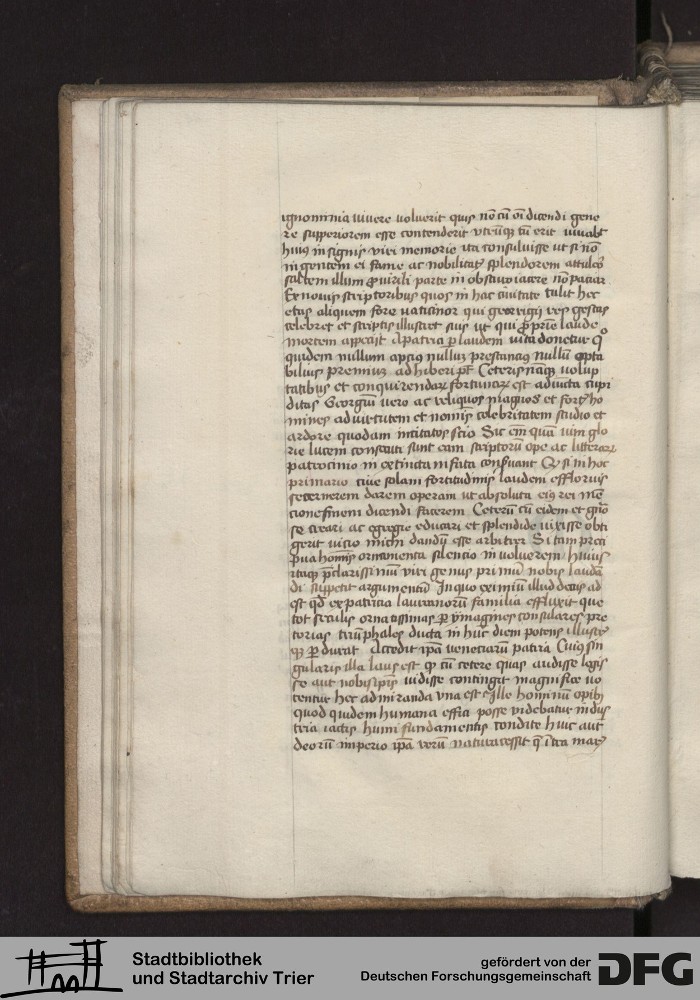 ignominia vivere voluerit quis nō cū oī dicendi gene
re superiorem esse contenderit vtcūq; tū erit
huius insignis viri memorie ita consuluisse ut si nō
ingentem ei fame ac nobilitatis splendorem attulero
saltem illum pro virili parte in obscuro iacere nō patiar
Et novis scriptoribus quos in hac civitate tulit hec
etas aliquem fore vaticinor qui georgij res gestas
celebret et scriptis illustret suis ut qui pro prie laude
mortem appetijt A patria p laudem vita donetur Quo
quidem nullum aptius nullum prestantius nullū opta
bilius premium adhiberi pōt Ceteris namq; volup
tatibus et conquirendarum fortunarum est adiuncta cupi
ditas Georgium vero ac reliquos magnos et fortes ho
mines ad virtutem et nominis celebritatem studio et
ardore quodam incitatos scio Sic em̄ quam vim glo
rie lucem consecuti sunt eam scriptorū ope ac litterarum
patrocinio inextincta conseruant Qd si in hoc
primario ciue solam fortitudinis laudem effloruisse
cernerem darem operam ut absoluta eius rei men
cione finem dicendi facerem Ceterum cū eidem et genero
se creari ac egregie educari et splendide vixisse obti
gerit vicio michi dandum esse arbitrer Si tam preci
pua hominis ornamenta silencio involverem huius
itaq; p̄clarissimum viri genus primū nobis laudan
di suppetit argumentū In quo eximium illud decus ad
est qd ex patricia lauranorū familia effluxit que
tot seculis ornatissimas p ymagines consulares pre
torias triūphales ducta in hunc diem potens illustris
q; p durat Accedit ip̄a venetiarum patria Cuius sin
gularis illa laus est q cū cetere quas audisse legis
se aut nobis ipis vidisse contingit magnifice vo
centur hec admiranda vna est Ille hominum opibus
quod quidem humana effici posse videbatur indus
tria iactis humi fundamentis condite huic aut
deorū imperio ip̄a rerum natura cessit q̄ intra mare
Stadtbibliothek
und Stadtarchiv Trier
gefördert von der
Deutschen Forschungsgemeinschaft
DFG